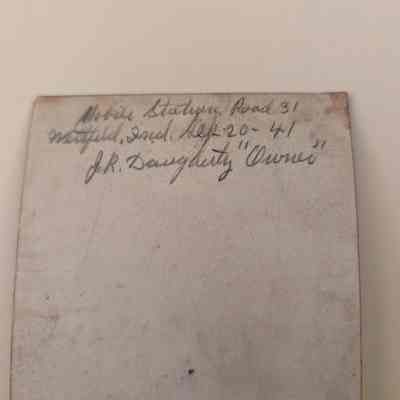 Mobile Station, Road 31
Westfield, Ind. Sept-20-41
J.R. Daugherty "Owner"